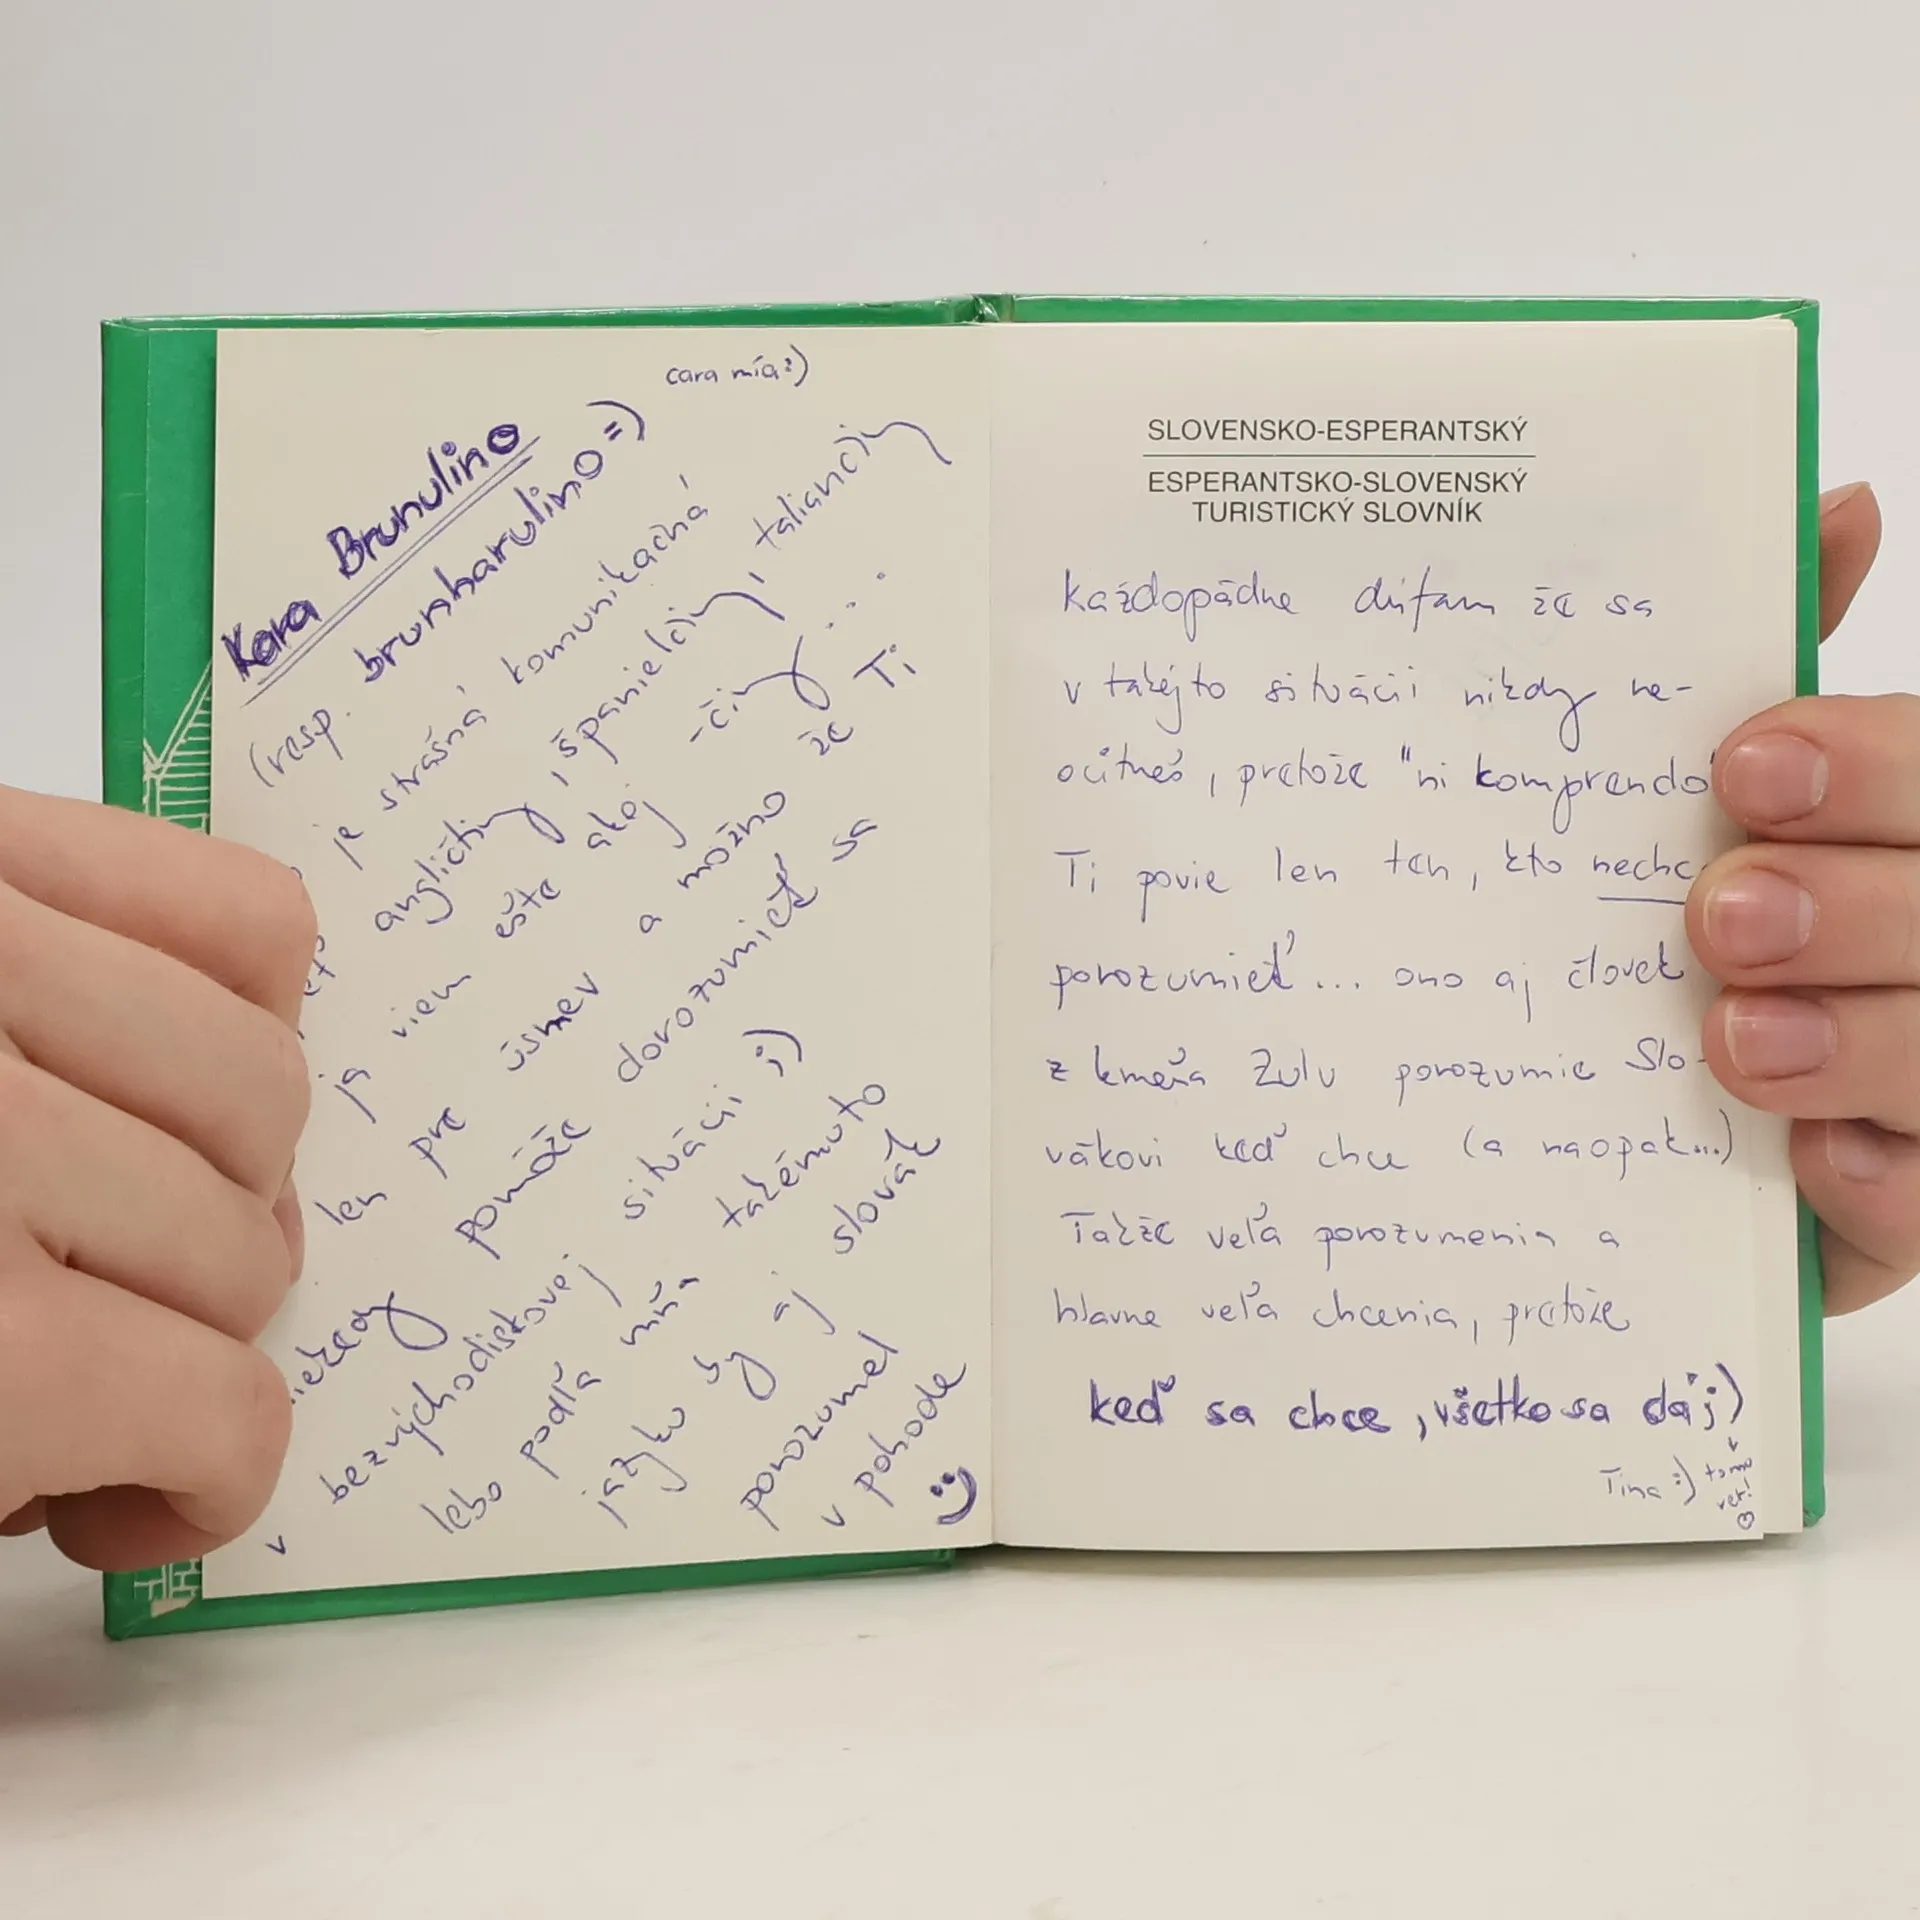 cara mía :)
Kara Brunulino
(resp. brunharulino =)
je strašná komunikačná
angličtiny, španielčiny, taliančiny
ja viem ešte akej -činy...
len pre úsmev a možno že Ti
pomôže dorozumieť sa
v bezvýchodiskovej situácii ;)
lebo podľa mňa takémuto
jazyku by aj slovák
porozumel
v pohode
SLOVENSKO-ESPERANTSKÝ
ESPERANTSKO-SLOVENSKÝ
TURISTICKÝ SLOVNÍK
Každopádne dúfam že sa
v takejto situácii nikdy ne-
ocitneš, pretože "ni komprendo"
Ti povie len ten, kto nechc
porozumieť... ono aj človek
z kmeňa Zulu porozumie Slo-
vákovi keď chce (a naopak...)
Takže veľa porozumenia a
hlavne veľa chcenia, pretože
keď sa chce, všetko sa dá ;)
Tina :) tomu
ver!